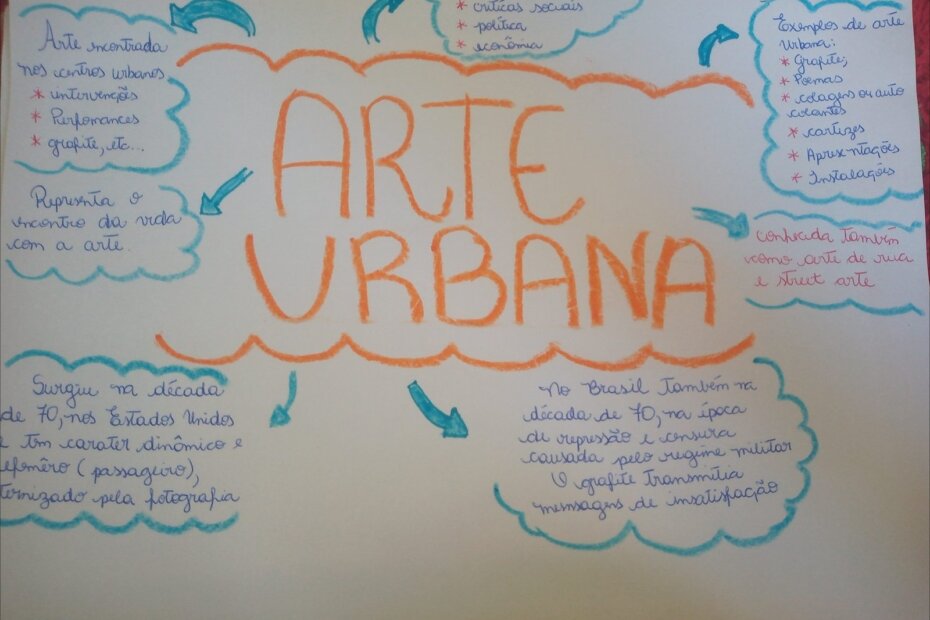 Arte encontrada
nos centros urbanos
* intervenções
* Perfomances
* grafite, etc...
* críticas sociais
* política
* econômia
Exemplos de arte
urbana:
* Grafite;
* Poemas
* colagens ou auto
colantes
* cartazes
* Apresentações
* Instalações
ARTE
URBANA
Representa o
encontro da vida
com a arte.
conhecida também
como arte de rua
e street arte
Surgiu na década
de 70, nos Estados Unidos
e tem carater dinômico e
efemêro (passageiro),
ternizado pela fotografia
No Brasil também na
década de 70, na época
de repressão e censura
causada pelo regime militar
O grafite transmitia
mensagens de insatisfação